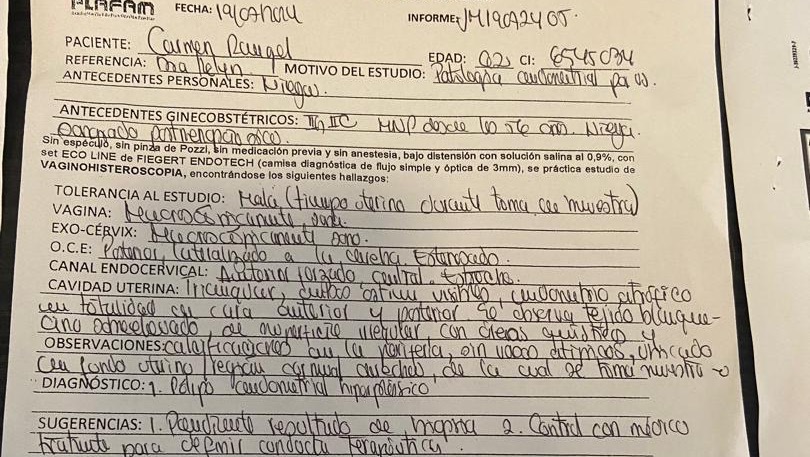 PLAFAM
FECHA: 19/07/2024 INFORME: JM190724 05
PACIENTE: Carmen Rangel
EDAD: 62 CI: 6545034
REFERENCIA: Dra MOTIVO DEL ESTUDIO: Patología endometrial
ANTECEDENTES PERSONALES: Niega.
ANTECEDENTES GINECOBSTÉTRICOS: IIG IIC MNP desde los 56 años. Niega
sangrado postmenopáusico.
Sin espéculo, sin pinza de Pozzi, sin medicación previa y sin anestesia, bajo distensión con solución salina al 0,9%, con
set ECO LINE de FIEGERT ENDOTECH (camisa diagnóstica de flujo simple y óptica de 3mm), se práctica estudio de
VAGINOHISTEROSCOPIA, encontrándose los siguientes hallazgos:
TOLERANCIA AL ESTUDIO: Mala (tiempo uterino durante toma de muestra)
VAGINA: Macroscópicamente sana.
EXO-CÉRVIX: Macroscópicamente sano.
O.C.E: Posterior, lateralizado a la derecha. Estenosado.
CANAL ENDOCERVICAL: Anterior forzado, central. Estrecho.
CAVIDAD UTERINA: Irregular, ambos ostium visibles, endometrio atrófico
en totalidad en cara anterior y posterior se observa tejido blanque-
cino sobreelevado, de superficie irregular con áreas quísticas y
OBSERVACIONES: calcificaciones en la periferia, sin vasos atípicos, ubicado
en fondo uterino región cornual derecha, de la cual se toma muestra
DIAGNÓSTICO: 1. Pólipo endometrial hiperplásico
SUGERENCIAS: 1. Pendiente resultado de biopsia 2. Control con médico
tratante para definir conducta terapéutica.